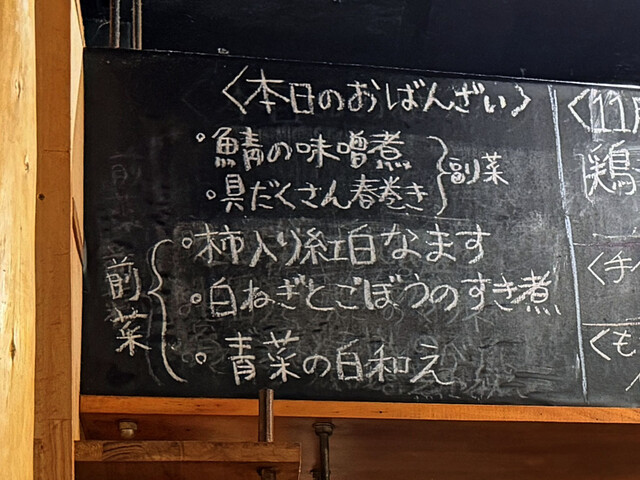 〈本日のおばんざい〉
・鯖の味噌煮
・具だくさん春巻き
副菜
・柿入り紅白なます
・白ねぎとごぼうのすき煮
・青菜の白和え
前菜
〈11月
鶏
〈手
〈も